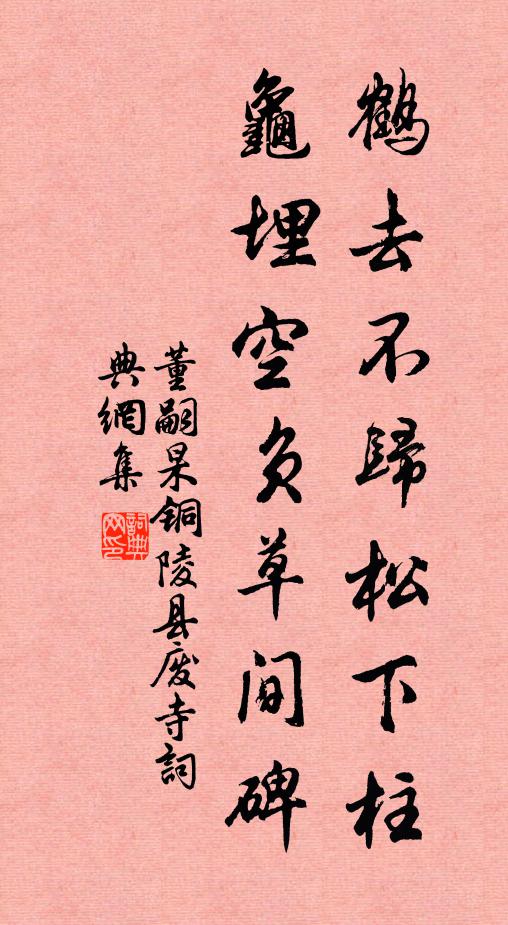 鶴去不歸松下柱
龜埋空负草间碑
董嗣杲铜陵县废寺詞
典網集
詞典网印